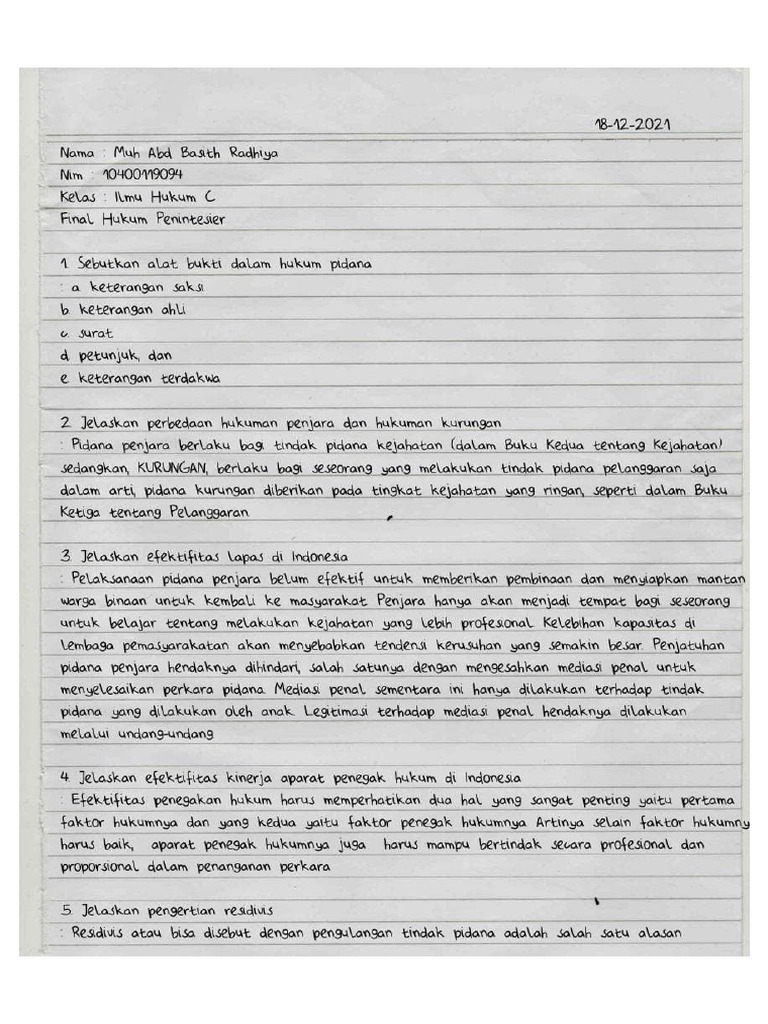 18-12-2021
Nama : Muh Abd Basith Radhiya
Nim : 10400119094
Kelas : Ilmu Hukum C
Final Hukum Penintesier
1. Sebutkan alat bukti dalam hukum pidana
: a. keterangan saksi
b. keterangan ahli
c. surat
d. petunjuk, dan
e. keterangan terdakwa
2. Jelaskan perbedaan hukuman penjara dan hukuman kurungan
: Pidana penjara berlaku bagi tindak pidana kejahatan (dalam Buku Kedua tentang Kejahatan)
sedangkan, KURUNGAN, berlaku bagi seseorang yang melakukan tindak pidana pelanggaran saja
dalam arti, pidana kurungan diberikan pada tingkat kejahatan yang ringan, seperti dalam Buku
Ketiga tentang Pelanggaran.
3. Jelaskan efektifitas lapas di Indonesia
: Pelaksanaan pidana penjara belum efektif untuk memberikan pembinaan dan menyiapkan mantan
warga binaan untuk kembali ke masyarakat. Penjara hanya akan menjadi tempat bagi seseorang
untuk belajar tentang melakukan kejahatan yang lebih profesional. Kelebihan kapasitas di
lembaga pemasyarakatan akan menyebabkan tendensi kerusuhan yang semakin besar. Penjatuhan
pidana penjara hendaknya dihindari, salah satunya dengan mengesahkan mediasi penal untuk
menyelesaikan perkara pidana. Mediasi penal sementara ini hanya dilakukan terhadap tindak
pidana yang dilakukan oleh anak. Legitimasi terhadap mediasi penal hendaknya dilakukan
melalui undang-undang
4. Jelaskan efektifitas kinerja aparat penegak hukum di Indonesia
: Efektifitas penegakan hukum harus memperhatikan dua hal yang sangat penting yaitu pertama
faktor hukumnya dan yang kedua yaitu faktor penegak hukumnya. Artinya selain faktor hukumny
harus baik, aparat penegak hukumnya juga harus mampu bertindak secara profesional dan
proporsional dalam penanganan perkara
5. Jelaskan pengertian residivis
: Residivis atau bisa disebut dengan pengulangan tindak pidana adalah salah satu alasan